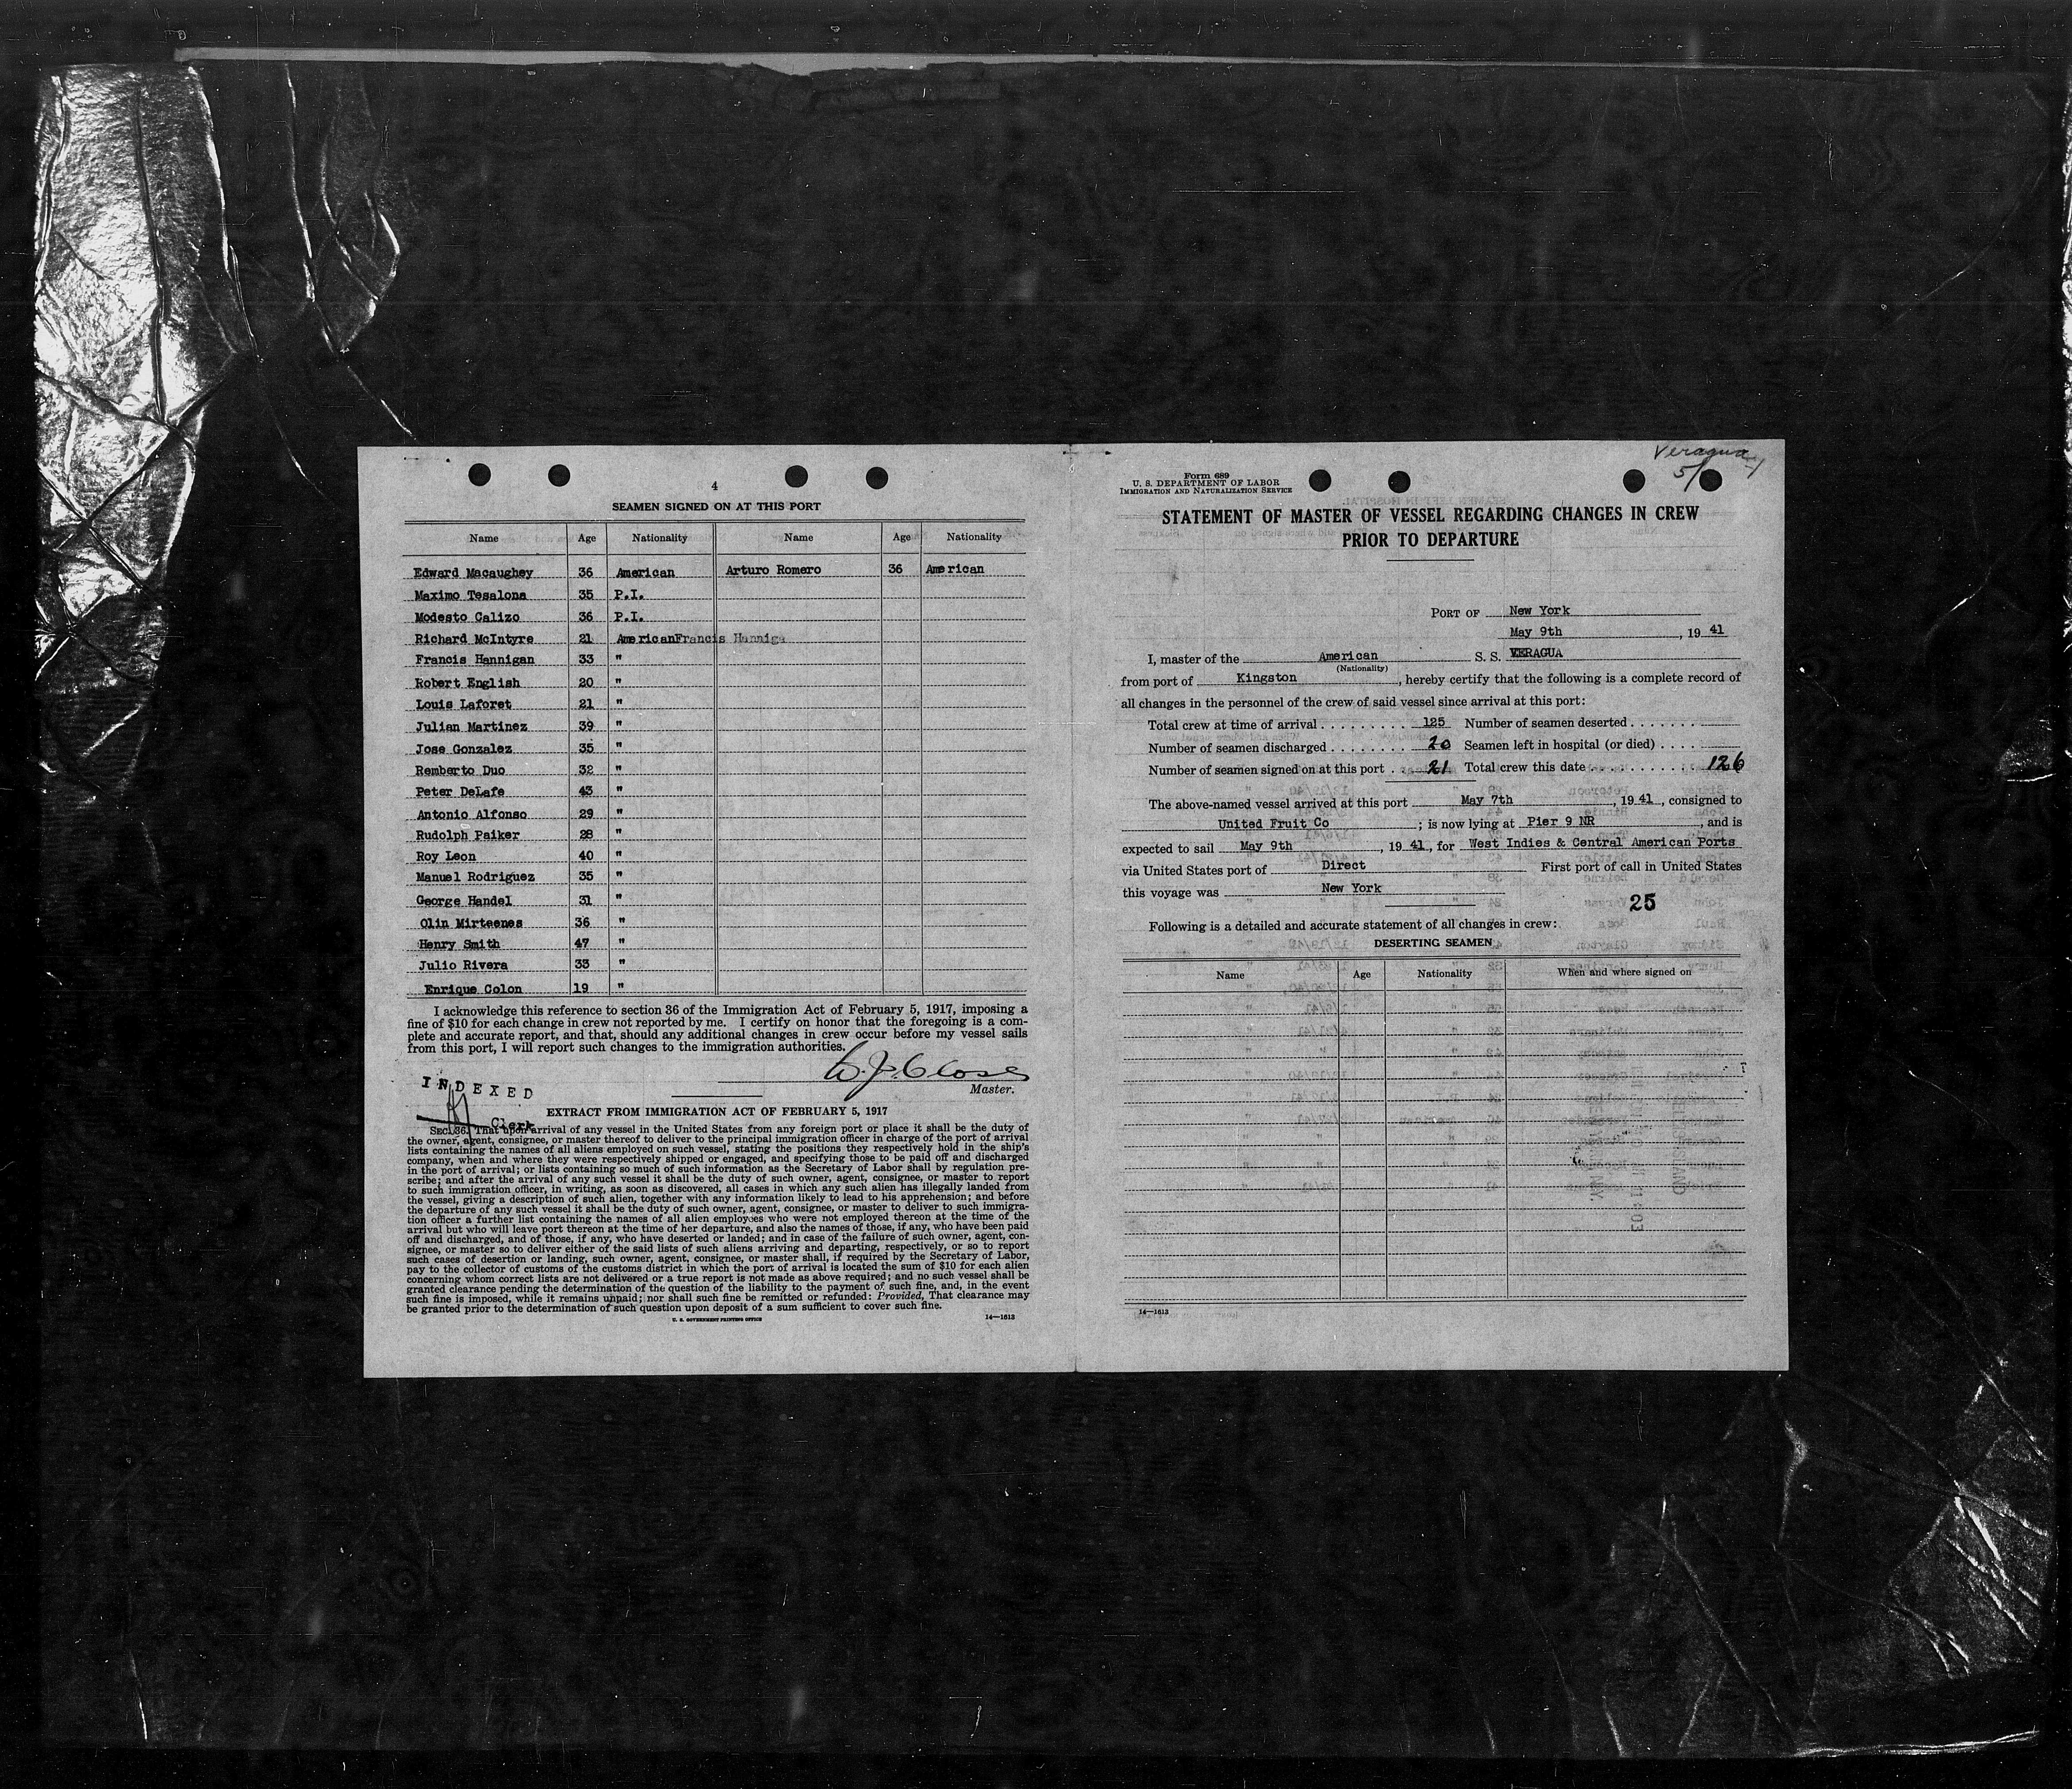 4
SEAMEN SIGNED ON AT THIS PORT
Name Age Nationality Name Age Nationality
Edward Macaughey 36 American Arturo Romero 36 American
Maximo Tesalona 35 P.I.
Modesto Calizo 36 P.I.
Richard McIntyre 21 American Francis Hanniga
Francis Hannigan 33 "
Robert English 20 "
Louis Laforet 21 "
Julian Martinez 39 "
Jose Gonzalez 35 "
Remberto Duo 32 "
Peter DeLafe 43 "
Antonio Alfonso 29 "
Rudolph Paiker 28 "
Roy Leon 40 "
Manuel Rodriguez 35 "
George Handel 31 "
Olin Mirteenes 36 "
Henry Smith 47 "
Julio Rivera 33 "
Enrique Colon 19 "
I acknowledge this reference to section 36 of the Immigration Act of February 5, 1917, imposing a
fine of $10 for each change in crew not reported by me. I certify on honor that the foregoing is a com-
plete and accurate report, and that, should any additional changes in crew occur before my vessel sails
from this port, I will report such changes to the immigration authorities.
W. J. Close
Master.
INDEXED
Clerk
EXTRACT FROM IMMIGRATION ACT OF FEBRUARY 5, 1917
SEC. 36. That upon arrival of any vessel in the United States from any foreign port or place it shall be the duty of
the owner, agent, consignee, or master thereof to deliver to the principal immigration officer in charge of the port of arrival
lists containing the names of all aliens employed on such vessel, stating the positions they respectively hold in the ship's
company, when and where they were respectively shipped or engaged, and specifying those to be paid off and discharged
in the port of arrival; or lists containing so much of such information as the Secretary of Labor shall by regulation pre-
scribe; and after the arrival of any such vessel it shall be the duty of such owner, agent, consignee, or master to report
to such immigration officer, in writing, as soon as discovered, all cases in which any such alien has illegally landed from
the vessel, giving a description of such alien, together with any information likely to lead to his apprehension; and before
the departure of any such vessel it shall be the duty of such owner, agent, consignee, or master to deliver to such immigra-
tion officer a further list containing the names of all alien employes who were not employed thereon at the time of the
arrival but who will leave port thereon at the time of her departure, and also the names of those, if any, who have been paid
off and discharged, and of those, if any, who have deserted or landed; and in case of the failure of such owner, agent, con-
signee, or master so to deliver either of the said lists of such aliens arriving and departing, respectively, or so to report
such cases of desertion or landing, such owner, agent, consignee, or master shall, if required by the Secretary of Labor,
pay to the collector of customs of the customs district in which the port of arrival is located the sum of $10 for each alien
concerning whom correct lists are not delivered or a true report is not made as above required; and no such vessel shall be
granted clearance pending the determination of the question of the liability to the payment of such fine, and, in the event
such fine is imposed, while it remains unpaid; nor shall such fine be remitted or refunded: Provided, That clearance may
be granted prior to the determination of such question upon deposit of a sum sufficient to cover such fine.
U. S. GOVERNMENT PRINTING OFFICE 14—1613
Veragua
5/
Form 689
U. S. DEPARTMENT OF LABOR
IMMIGRATION AND NATURALIZATION SERVICE
STATEMENT OF MASTER OF VESSEL REGARDING CHANGES IN CREW
PRIOR TO DEPARTURE
PORT OF New York
May 9th, 19 41
I, master of the American S. S. VERAGUA
(Nationality)
from port of Kingston, hereby certify that the following is a complete record of
all changes in the personnel of the crew of said vessel since arrival at this port:
Total crew at time of arrival . . . . . . . . . 125 Number of seamen deserted . . . . . . .
Number of seamen discharged . . . . . . . . 20 Seamen left in hospital (or died) . . . .
Number of seamen signed on at this port . . 21 Total crew this date . . . . . . . . . . . 126
The above-named vessel arrived at this port May 7th, 19 41, consigned to
United Fruit Co ; is now lying at Pier 9 NR, and is
expected to sail May 9th, 19 41, for West Indies & Central American Ports
via United States port of Direct First port of call in United States
this voyage was New York
25
Following is a detailed and accurate statement of all changes in crew:
DESERTING SEAMEN
Name Age Nationality When and where signed on
14—1613